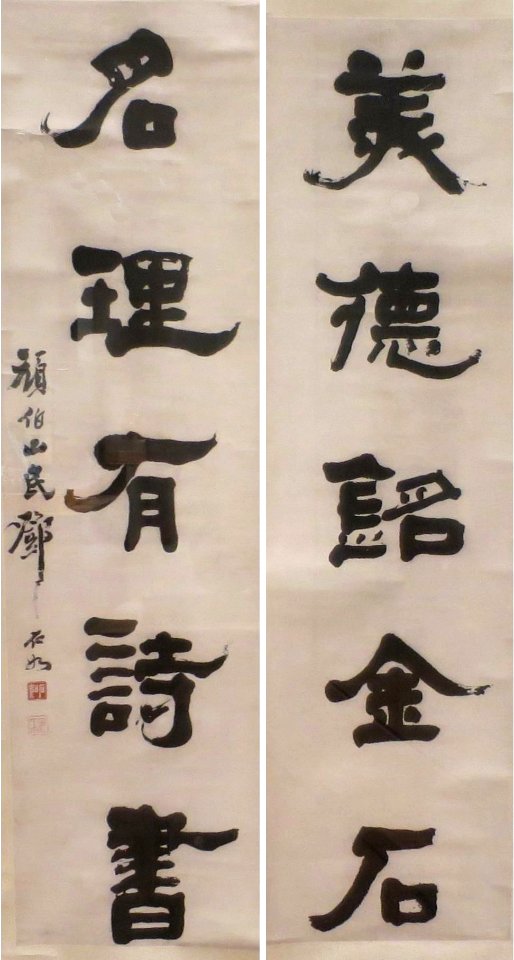 美德銘金石
名理有詩書
頑伯山民鄧石如